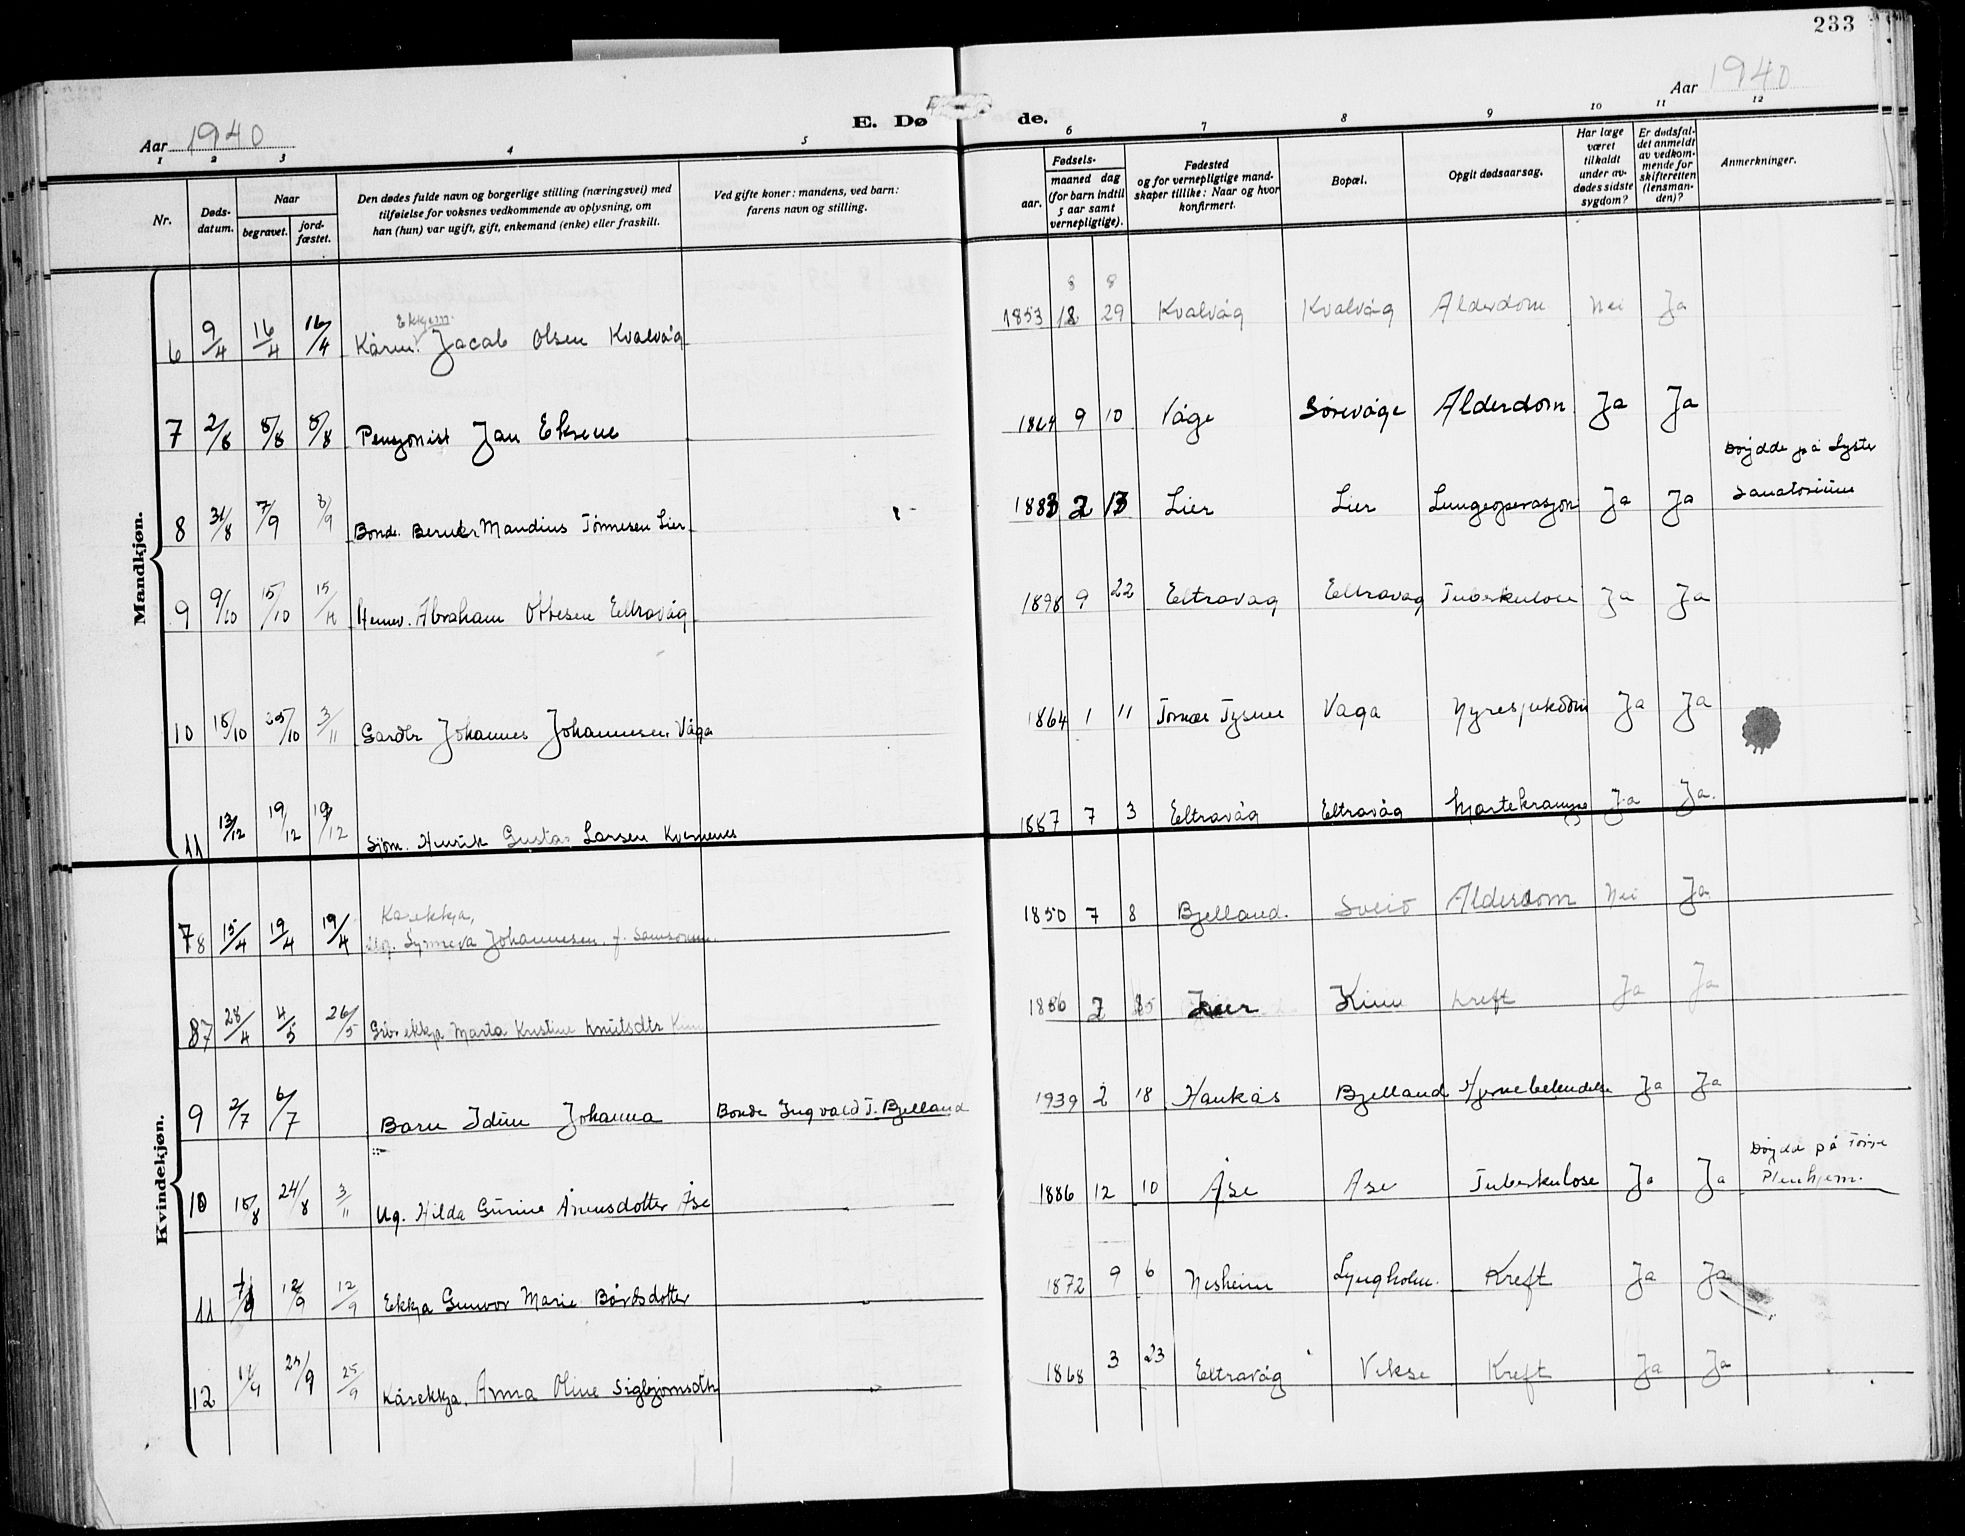 233
Aar 1940
E. Dø de.
Aar 1940
1 2 3 4 5 6 7 8 9 10 11 12
Nr.
Døds-datum.
Naar
begravet.
jord-fæstet.
Den dødes fulde navn og borgerlige stilling (næringsvei) med
tilføielse for voksnes vedkommende av oplysning, om
han (hun) var ugift, gift, enkemand (enke) eller fraskilt.
Ved gifte koner: mandens, ved barn:
farens navn og stilling.
Fødsels-
aar.
maaned dag
(for barn indtil
5 aar samt
vernepligtige).
Fødested
og for vernepligtige mand-
skaper tillike: Naar og hvor
konfirmert.
Bopæl.
Opgit dødsaarsag.
Har læge
været
tilkaldt
under av-
dødes sidste
sygdom?
Er dødsfal-
det anmeldt
av vedkom-
mende for
skifteretten
(lensman-
den)?
Anmerkninger.
Mandkjøn.
6 9/4 16/4 16/4 Kårm. Ekkjem. Jacob Olsen Kvalvåg 1853 29 Kvalvåg Kvalvåg Alderdom Nei Ja
7 2/8 8/8 8/8 Pensjonist Jan Eksene 1864 9 10 Våge Sørevåge Alderdom Ja Ja
8 31/8 7/9 8/9 Bonde Mandius Tønnesen Lier 2 13 Lier Lier Lungeoperasjon Ja Ja Døydde på Lyster
Sanatorium
9 9/10 15/10 Abraham Ottesen Eltravåg 1898 9 22 Eltravag Eltravag Tuberkulose Ja Ja
10 18/10 25/10 3/11 Gardbr Johannes Johannesen Våga 1864 1 11 Tysnes Vaga Nyresjukdom Ja Ja
11 13/12 19/12 19/12 Sjøm. Henrik Gustav Larsen Kvernenes 1887 7 3 Eltravåg Eltravåg Hjartekrampe Ja Ja.
Kvindekjøn.
8 15/4 19/4 19/4 Kårekkja, Johannesen. f. Samsonsen. 1850 7 8 Bjelland. Sveio Alderdom Nei Ja
7 28/4 4/5 26/5 ekkja Marta Kristine Knutsdtr 1856 2 Lier Kinn Kreft Ja Ja
9 2/7 6/7 Barn Idun Johanna Bonde Ingvald T. Bjelland 1939 2 18 Haukås Bjelland Hjernebetendelse Ja Ja
10 18/8 24/8 3/11 Ug. Hilda Gurine Årnesdotter Åse 1886 12 10 Åse Åse Tuberkulose Ja Ja Døydde på
Pleiehjem.
11 7/9 12/9 12/9 Ekkja Gunvor Marie Bårdsdotter 1872 9 6 Nesheim Lyngholm. Kreft Ja Ja
12 25/9 Kårekkja. Anna Oline Sigbjørnsdtr 1868 3 23 Eltravåg Vikse Kreft Ja Ja